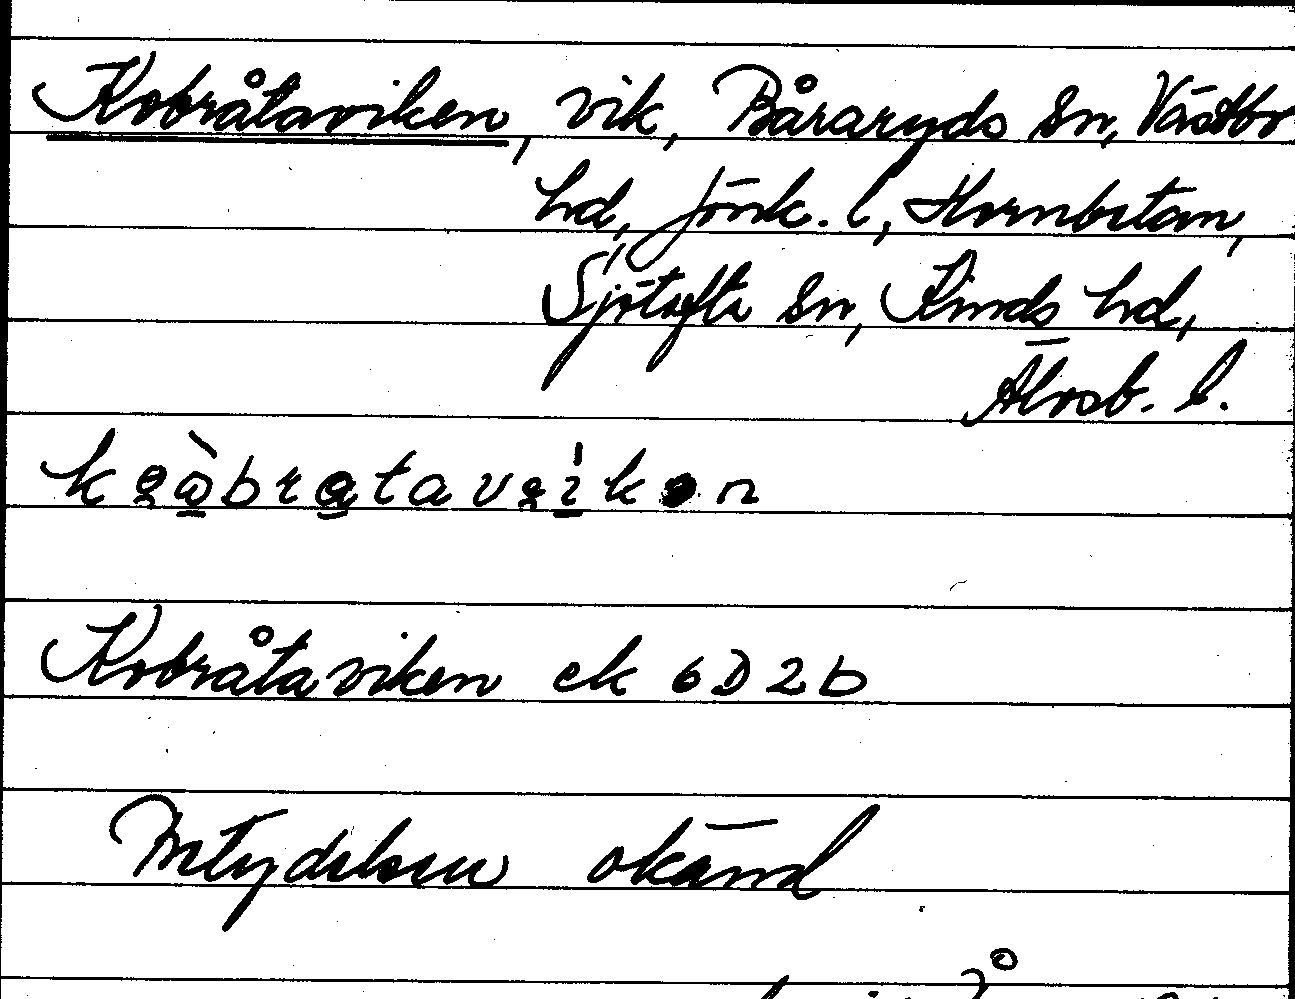 Kobråtaviken, vik, Båraryds sn, Västbo
hd, Jönk. l, Hornbetam,
Sjötofta sn, Kinds hd,
Älvsb. l.
Kobråtaviken ek 6D2b
Betydelsen okänd